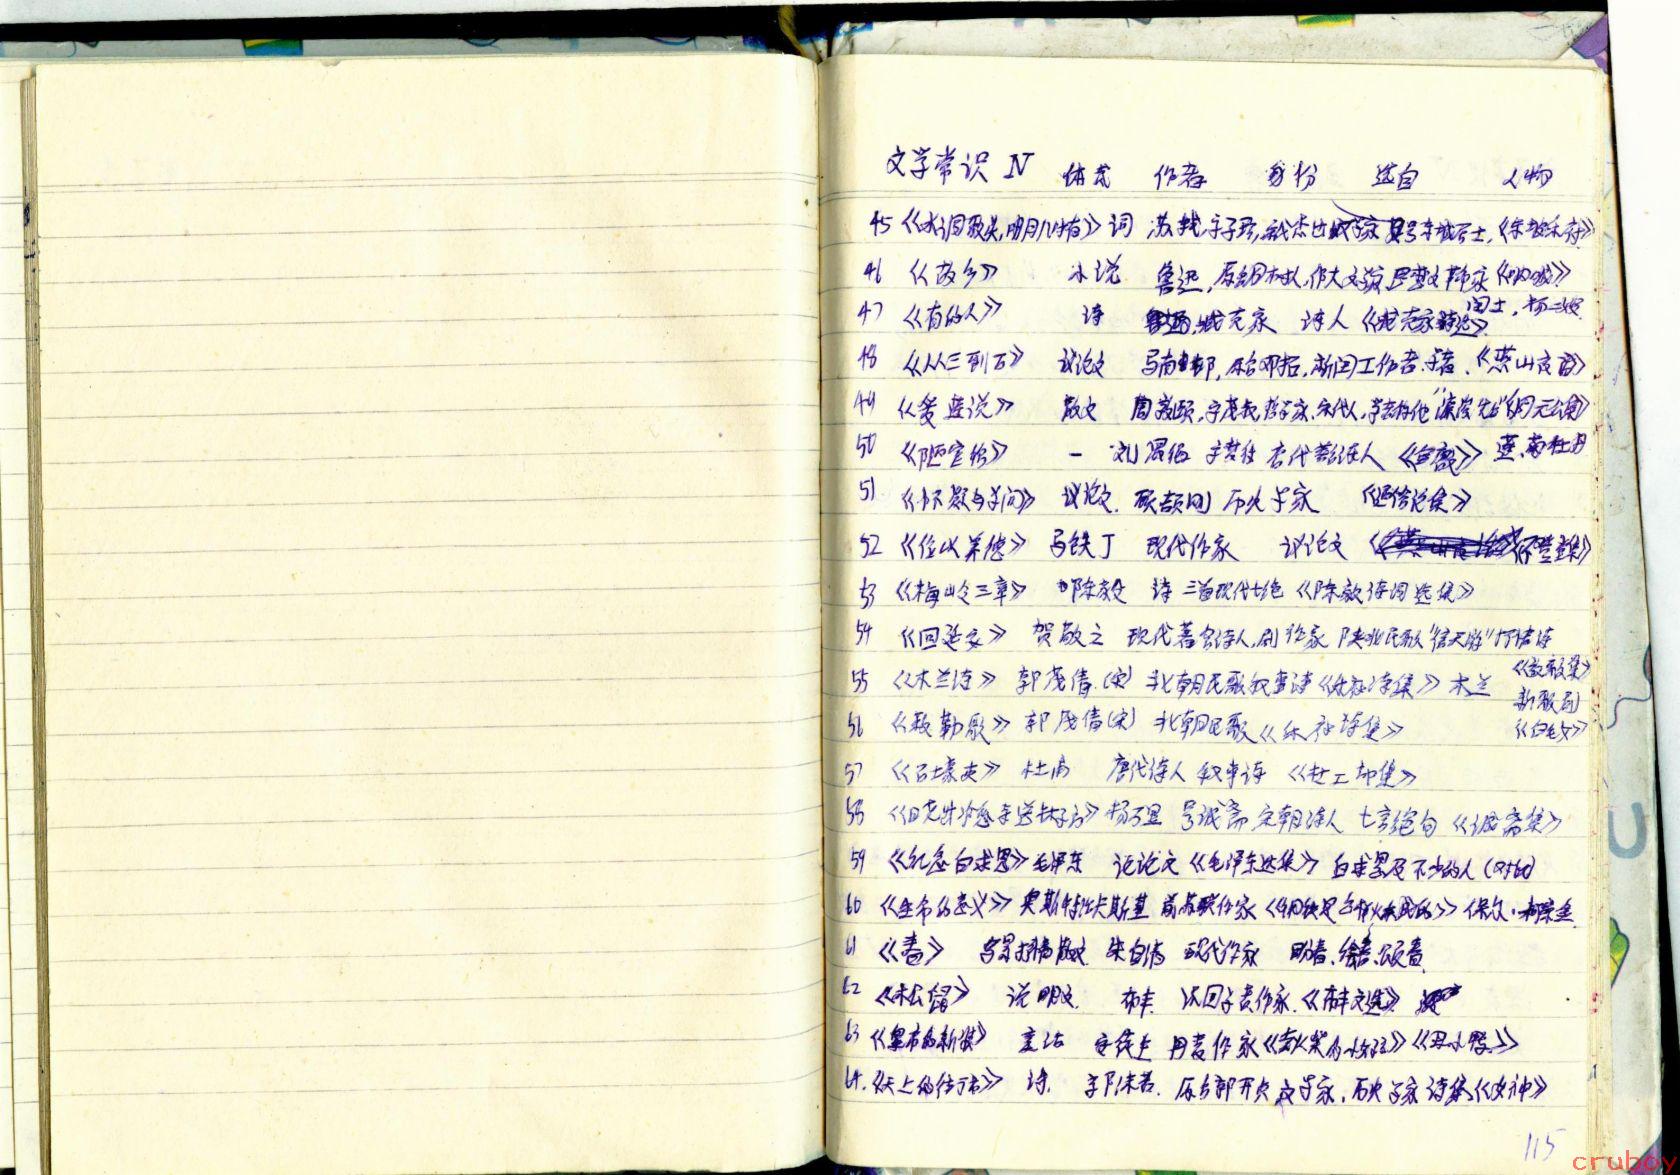 文学常识 IV 体裁 作者 身份 选自 人物
45 《水调歌头,明月几时有》 词 苏轼,字子瞻, 号东坡居士,
46 《故乡》 小说 鲁迅,原名周树人,伟大文学家 思想家 革命家 《呐喊》
闰土,杨二嫂
47 《有的人》 诗 臧克家 诗人 《臧克家诗选》
48 《从三到万》 议论文 马南邨,原名邓拓,新闻工作者, 《燕山夜话》
49 《爱莲说》 散文 周敦颐,字茂叔 哲学家,宋代人, "濂溪先生"《周元公集》
50 《陋室铭》 — 刘禹锡 字梦得 唐代著名诗人 《全唐文》 莲、菊、牡丹
51 《怀疑与学问》 议论文 顾颉刚 历史学家 《通俗论集》
52 《俭以养德》 马铁丁 现代作家 议论文
53 《梅岭三章》 陈毅 诗 三首现代七绝 《陈毅诗词选集》
54 《回延安》 贺敬之 现代著名诗人,剧作家 陕北民歌"信天游"抒情诗
《放歌集》
55 《木兰诗》 郭茂倩(宋) 北朝民歌叙事诗《乐府诗集》 木兰
新歌剧
56 《敕勒歌》 郭茂倩(宋) 北朝民歌《乐府诗集》
《白毛女》
57 《石壕吏》 杜甫 唐代诗人 叙事诗 《杜工部集》
58 《晓出净慈寺送林子方》 杨万里 号诚斋 宋朝诗人 七言绝句 《诚斋集》
59 《纪念白求恩》毛泽东 议论文《毛泽东选集》 白求恩及不少的人(对比)
60 《生命的意义》 奥斯特洛夫斯基 前苏联作家《钢铁是怎样炼成的》 保尔·柯察金
61 《春》 写景抒情散文 朱自清 现代作家 盼春、绘春、颂春
62 《松鼠》 说明文 布丰 法国学者作家.《布丰文选》
63 《皇帝的新装》 童话 安徒生 丹麦作家《卖火柴的小女孩》《丑小鸭》
64.《天上的街市》 诗. 郭沫若. 原名郭开贞 文学家,历史学家 诗集《女神》
115
cruboy